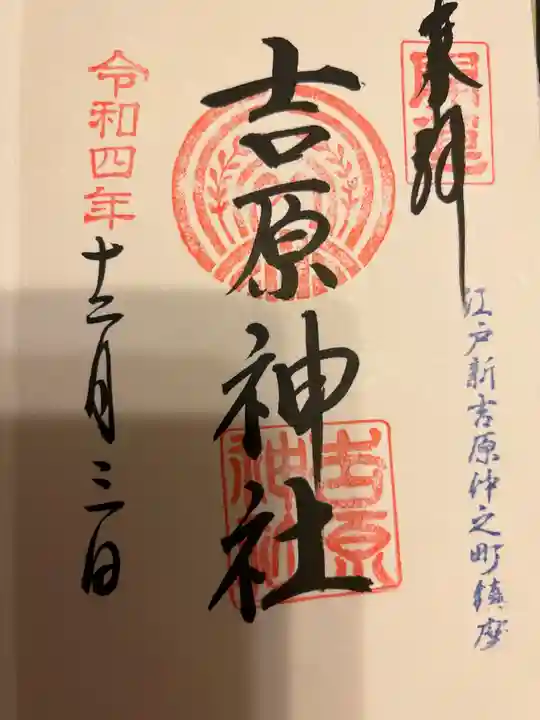 奉拝
開運
江戸新吉原仲之町鎮座
吉原神社
吉原神社
令和四年
十二月三日